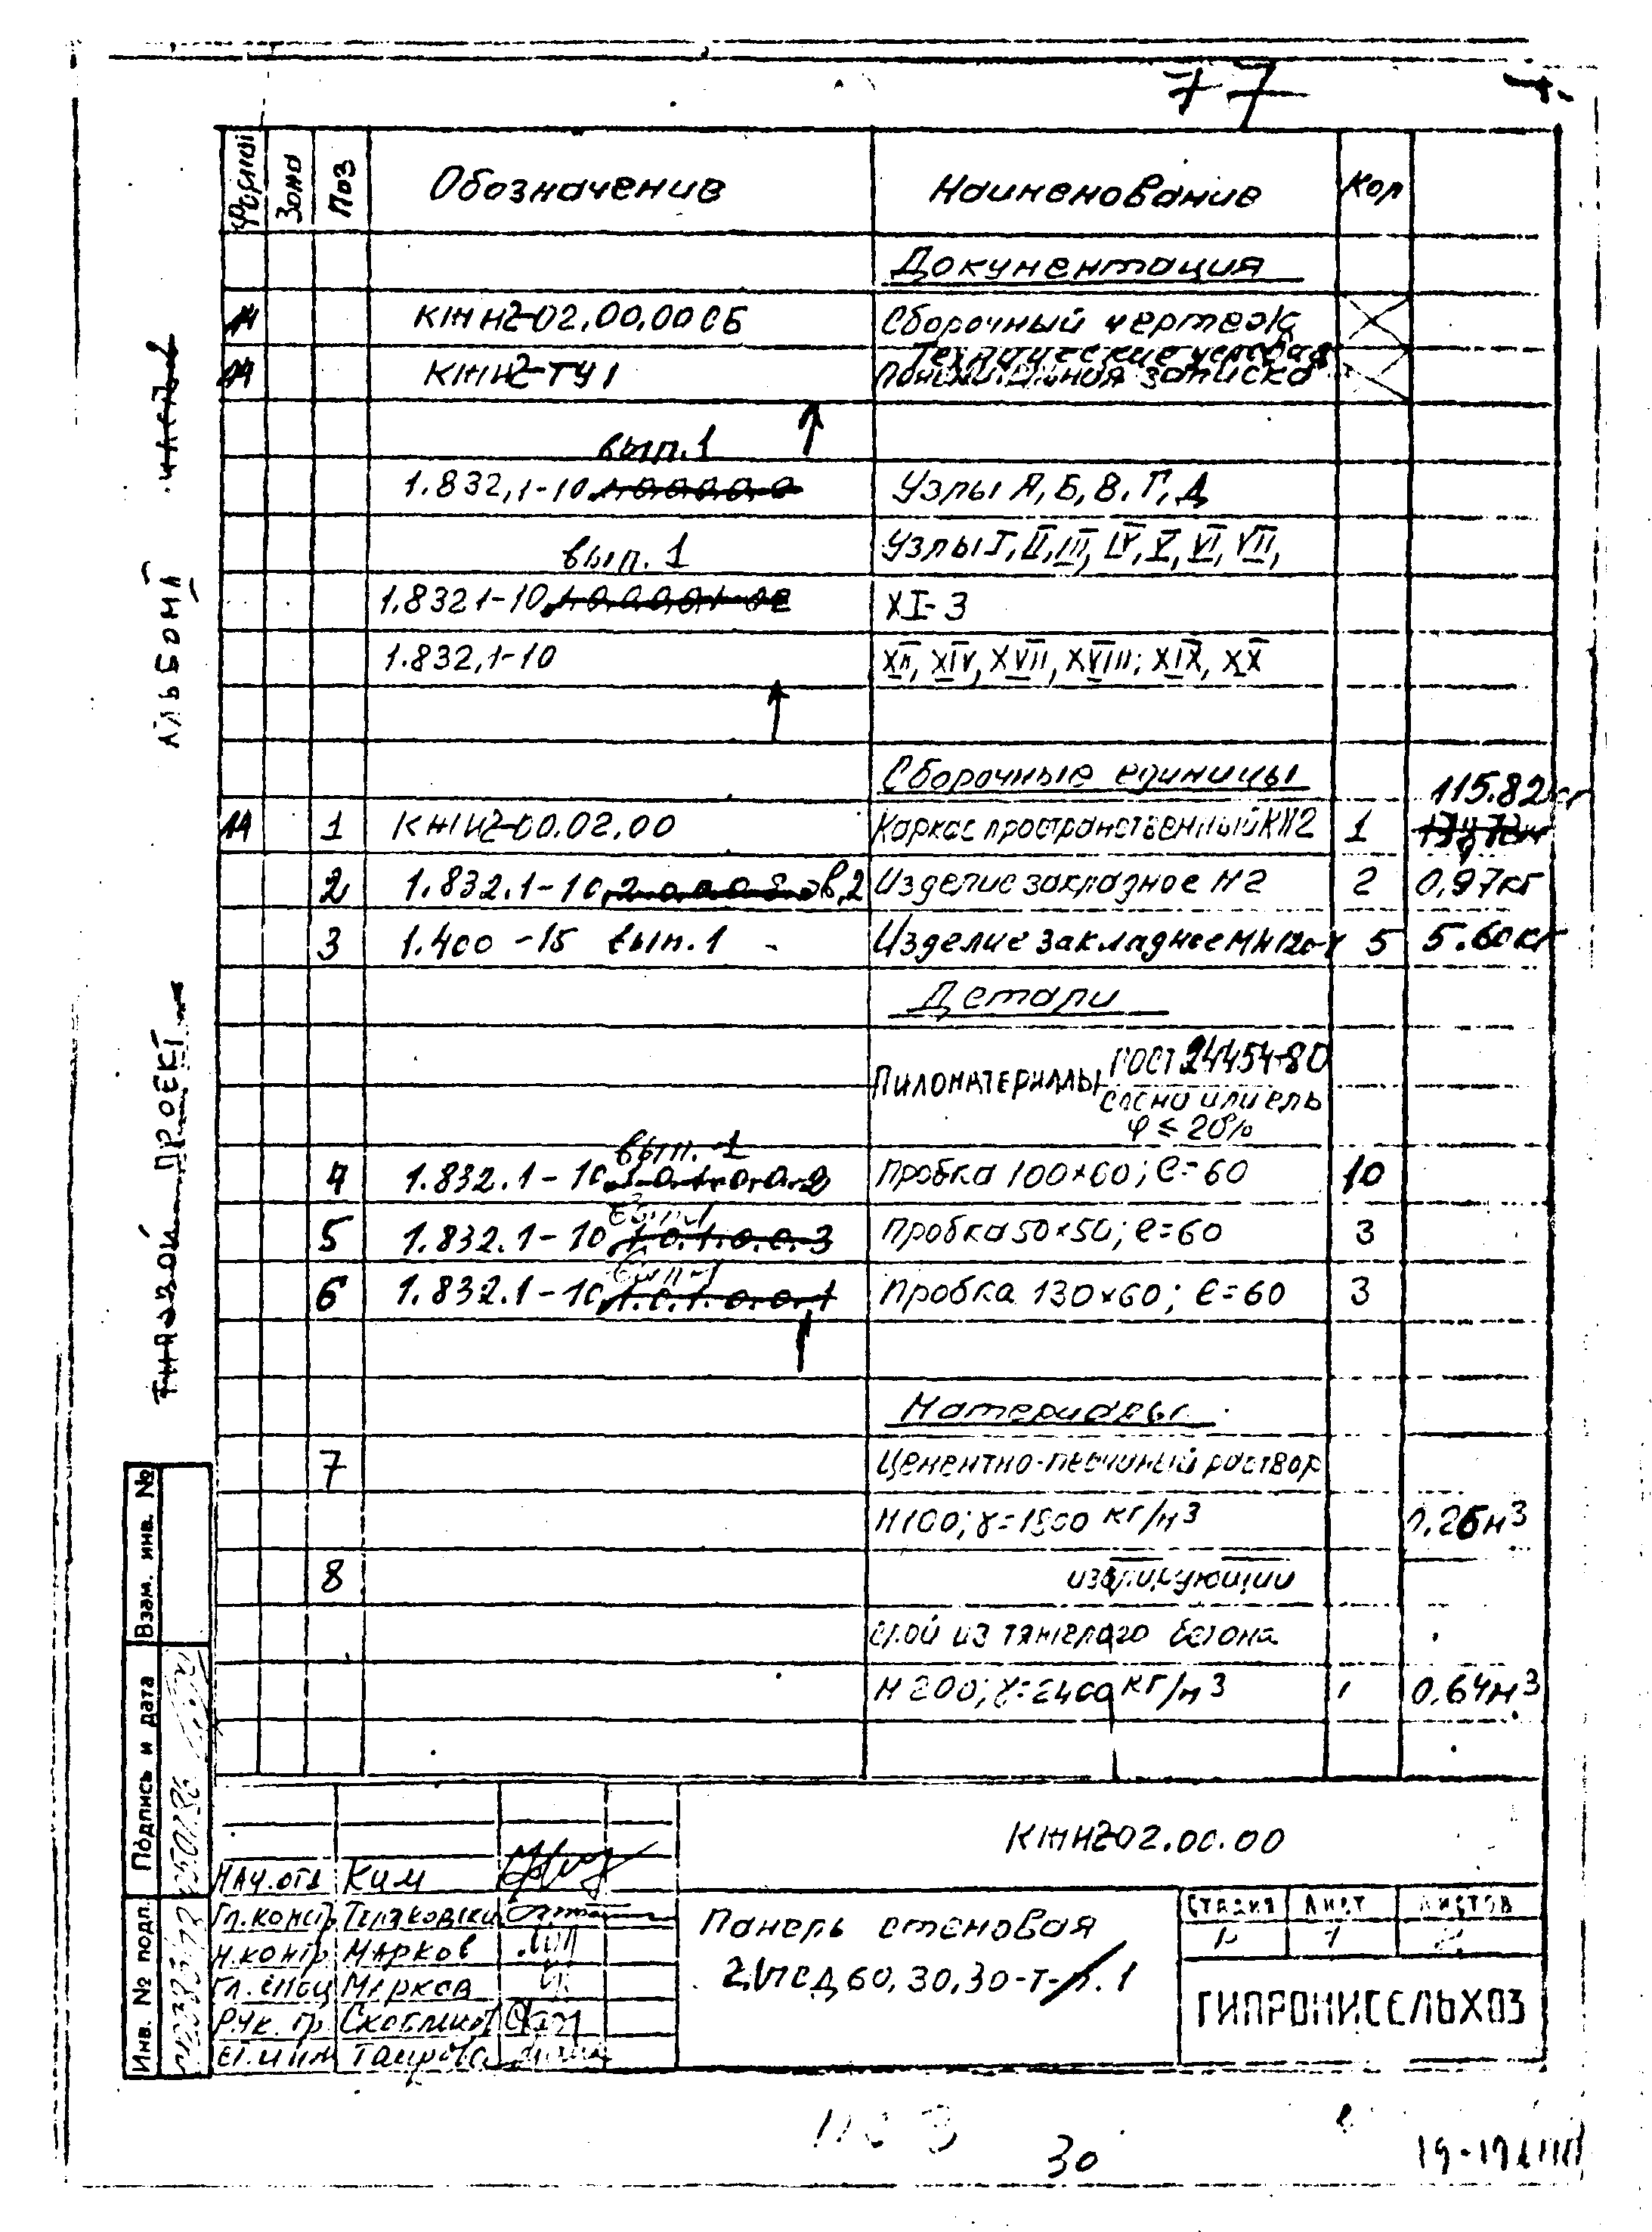 77
Формат Зона Поз Обозначение Наименование Кол
Документация
КЖИ2-02.00.00 СБ Сборочный чертеж
Технические условия
КЖИ2-ТУ1 записка
вып.1
1.832.1-10 Узлы А, Б, В, Г, Д
Узлы I, II, III, IV, V, VI, VII,
вып. 1
1.832.1-10 XI-3
1.832.1-10 XII, XIV, XVII, XVIII; XIX, XX
Сборочные единицы
115.82кг
1 КЖИ2-00.02.00 Каркас пространственный КП2 1
2 1.832.1-10 в.2 Изделие закладное М2 2 0,97кг
3 1.400-15 вып.1 Изделие закладное МН120-4 5 5.60кг
Детали
Пиломатериалы ГОСТ 24454-80
сосна или ель
φ ≤ 20%
вып. 1
4 1.832.1-10 Пробка 100×60; ℓ=60 10
вып.1
5 1.832.1-10 Пробка 50×50; ℓ=60 3
вып.1
6 1.832.1-10 Пробка 130×60; ℓ=60 3
Материалы
7 Цементно-песчаный раствор
М100; γ=1800 кг/м3 0.26м3
8 изолирующий
слой из тяжелого бетона
М200; γ=2400 кг/м3 0.64м3
АЛЬБОМ
ТИПОВОЙ ПРОЕКТ
Взам. инв. №
Подпись и дата
Инв. № подл.
КЖИ2-02.00.00
Нач.отд Ким
Гл.констр.
Н.контр Марков
Гл.спец Марков
Рук. гр.
Ст.инж Таирова
Панель стеновая
2ПСД 60.30.30-Т-П.1
Стадия Лист Листов
Р 1 2
ГИПРОНИСЕЛЬХОЗ
30